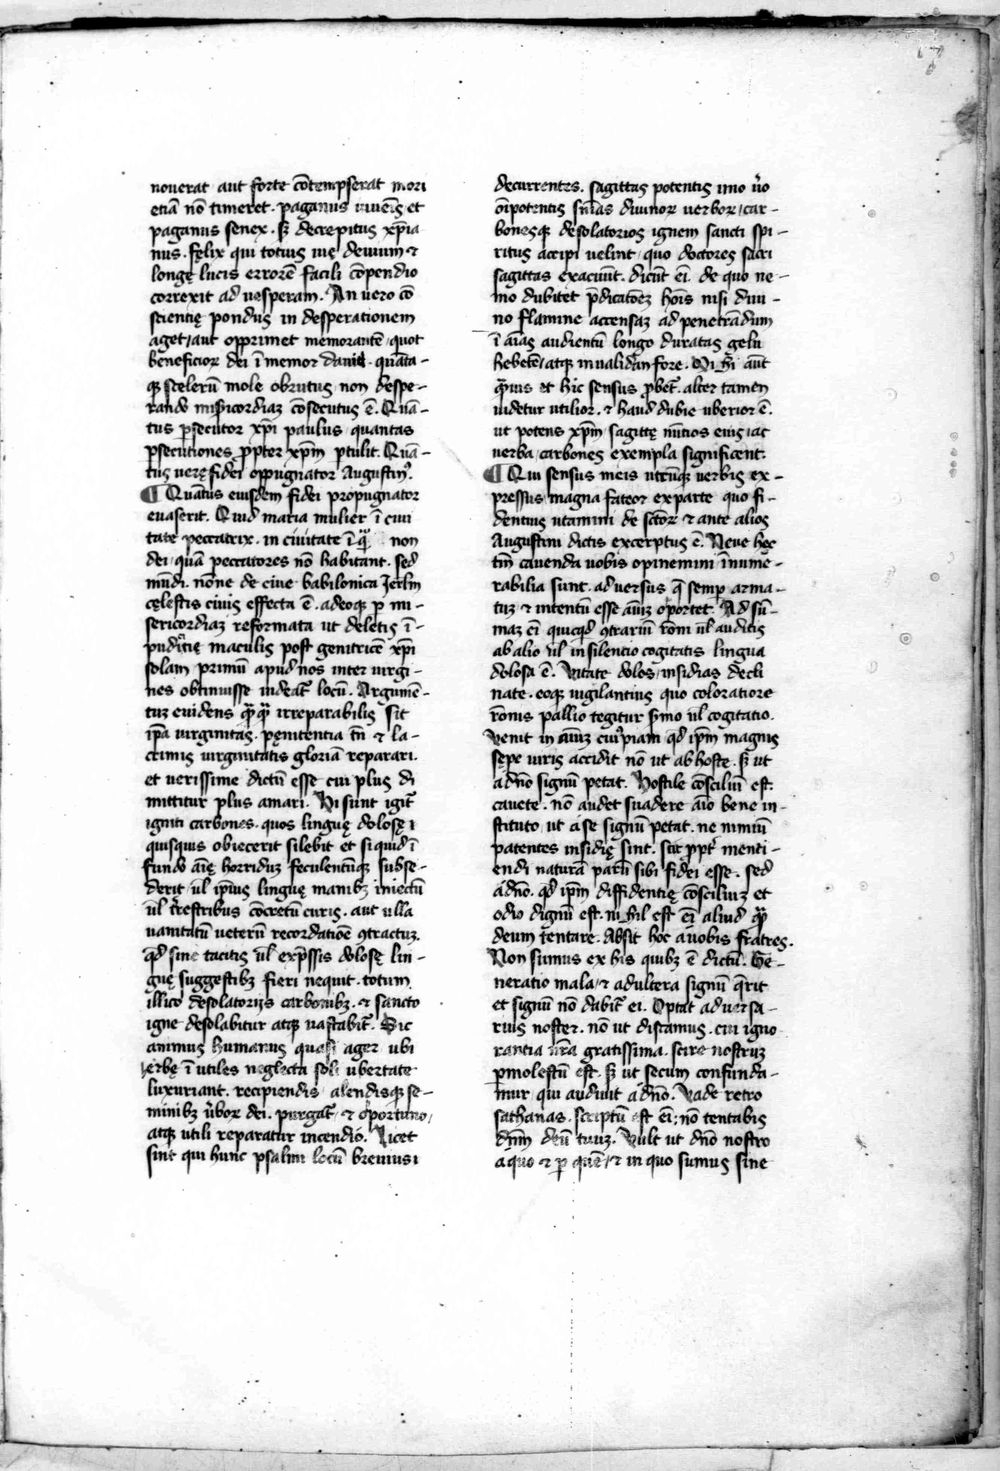 nouerat aut forte cōtempserat mori
etiā nō timeret. paganus iuuenis et
paganus senex. sꝫ decrepitus xp̄ia
nus. fęlix qui totius uię deuium ⁊
longę lucis errorē facili cōpendio
correxit ad uesperam. An uero cō
scientię pondus in desperationem
aget/aut opprimet memorantē/quot
beneficioꝝ dei ī memor dauid. quāta-
qꝫ scelerū mole obrutus non despe-
rando mīsicordiaꝫ cōsecutus ē. Quā-
tus ꝑsecutor xp̄i paulus/quantas
ꝑsecutiones ꝓpter xp̄m ꝑtulit. Quā-
tus uerę fidei oppugnator Augustin⁹.
¶ Quātus eiusdem fidei propugnator
euaserit. Quid maria mulier ī ciui
tate peccatrix. in ciuitate ī non
dei/quā peccatores nō habitant. sed
mūdi. nōne de ciue babilonica Jerl̄m
cęlestis ciuis effecta ē. adeoqꝫ ꝑ mi-
sericordiaꝫ reformata ut deletis ī-
pudicitię maculis post genitricē xp̄i
solam/primū apud nos inter uirgi-
nes obtinuisse uideat᷑ locū. Argumē-
tuꝫ euidens qꝫqꝫ irreparabilis sit
ip̄a uirginitas. pęnitentia tn̄ ⁊ la-
crimis uirginitatis gloriā reparari.
et uerissime dictū esse cui plus di
mittitur plus amari. Hi sunt igit᷑
igniti carbones. quos linguę dolosę
quisquis obiecerit silebit et si quid ī
fundo aīę horridꝫ feculentūqꝫ subse-
derit/ul̄ ip̄ius linguę manibꝫ iniectū
ul̄ t̄restribus cōcretū curis. aut ulla
uanitatū ueterū recordatiōe ꝯtractuꝫ.
qd̄ sine tacitis ul̄ exp̄ssis dolosę lin-
guę suggestibꝫ fieri nequit. totum
illico desolatorijs carbonibꝫ. ⁊ sancto
igne desolabitur atqꝫ uastabit᷑. Sic
animus humanus quasi ager ubi
herbę ī utiles neglecta soli ubertate
luxuriant. recipiendis/alendisqꝫ se-
minibꝫ ūboꝝ dei. purgat᷑/⁊ oportuno/
atqꝫ utili reparatur incendio. Licet
sint qui hunc psalmi locū breuiusi
decurrentes. sagittas potentis imo ūo
oīpotentis snīas diuinoꝝ uerboꝝ/car-
bonesqꝫ desolatorios ignem sancti spi-
ritus accipi uelint/quo doctores sacri
sagittas exacuūt. dicūt eī. de quo ne-
mo dubitet p̄dicatoēꝫ hoīs nisi diui-
no flamine accensaꝫ ad penetrādum
ī aīas audientū longo duratas gelu
hebetē/atqꝫ inualidā fore. Qi hī aūt
quis et hic sensus ꝓbet᷑. alter tamen
uidetur utilior. ⁊ haud dubie uberior ē.
ut potens xp̄m/sagittę nūtios eius/ac
uerba/carbones exempla significent.
¶ Qui sensus meis utrūqꝫ uerbis ex-
pressus magna fateor exparte quo fi-
dentius utamini de sctōꝝ ⁊ ante alios
Augustini dictis excerptus ē. Neue hęc
tm̄ cauenda uobis opinemini/īnume-
rabilia sunt. aduersus q̄ semꝑ arma-
tuꝫ ⁊ intentū esse aīuꝫ oportet. Ad sū-
maꝫ eī quicqd̄ ꝯtrariū rōni ul̄ auditis
ab alio ul̄ in silentio cogitatis lingua
dolosa ē. Vitate dolos/insidias decli
nate. eoqꝫ uigilantius quo coloratiore
rōnis pallio tegitur ꝫmo ul̄ cogitatio.
Venit in aīuꝫ cui⁹piam qd̄ ip̄m magnis
sępe uiris accidit nō ut ab hoste. sꝫ ut
a dn̄o signū petat. Hostile cōsciliū est.
cauete. nō audet suadere aīo bene in-
stituto/ut a se signū petat. ne nimiū
patentes insidię sint. scit ꝓpt᷑ menti-
endi naturā parū sibi fidei esse. sed
a dn̄o. qd̄ ip̄m diffidentię cōsciliuꝫ et
odio dignū est. nihil est eī aliud qꝫ
deum tentare. Absit hoc a uobis fratres.
Non sumus ex his quibꝫ ē dictū. Ge-
neratio mala/⁊ adultera signū q̄rit
et signū nō dabit᷑ ei. Optat aduersa-
rius noster. nō ut discamus. cui igno
rantia nr̄a gratissima. scire nostruꝫ
ꝑmolestū est. sꝫ ut secum confunda-
mur/qui audiuit a dn̄o. Vade retro
sathanas. scriptū est eī; nō tentabis
dn̄m deū tuuꝫ. Vult ut dn̄o nostro
a quo ⁊ ꝑ quē/⁊ in quo sumus sine